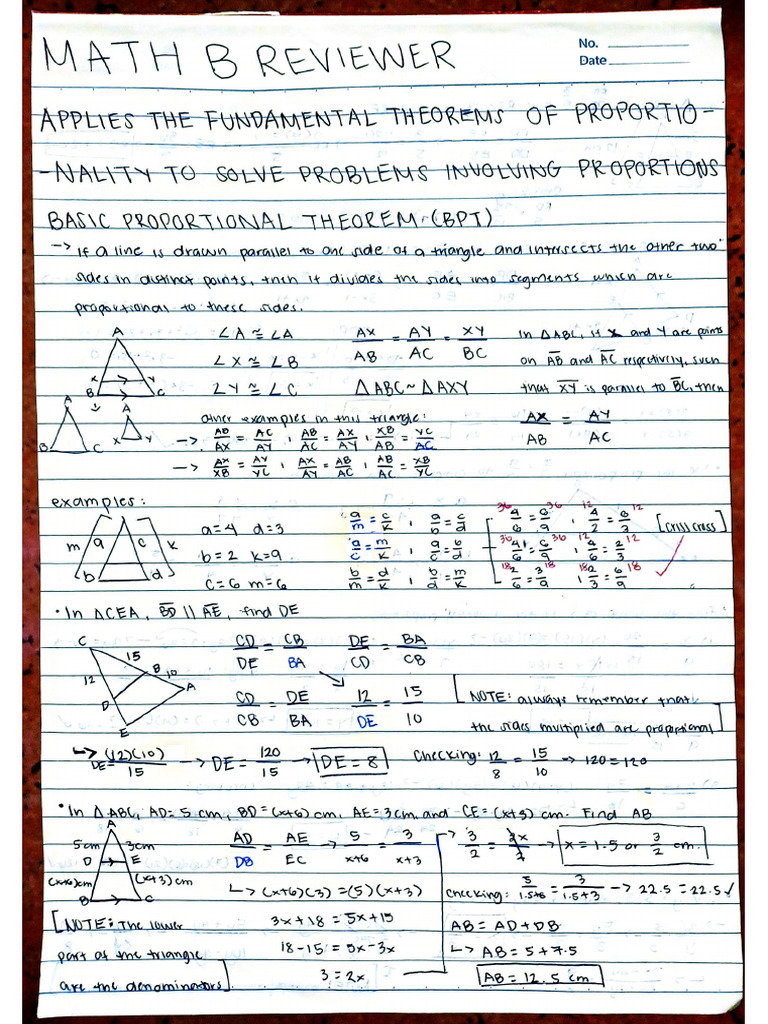 MATH B REVIEWER
No.
Date
APPLIES THE FUNDAMENTAL THEOREMS OF PROPORTIO-
-NALITY TO SOLVE PROBLEMS INVOLVING PROPORTIONS
BASIC PROPORTIONAL THEOREM (BPT)
-> If a line is drawn parallel to one side of a triangle and intersects the other two
sides in distinct points, then it divides the sides into segments which are
proportional to these sides.
A X Y B C
∠A ≅ ∠A
∠X ≅ ∠B
∠Y ≅ ∠C
AX/AB = AY/AC = XY/BC
△ABC ~ △AXY
In △ABC, if X and Y are points
on AB and AC respectively, such
that XY is parallel to BC, then
AX/AB = AY/AC
A B C A X Y
other examples in this triangle:
-> AB/AX = AC/AY , AB/AC = AX/AY , XB/AB = YC/AC
-> AX/XB = AY/YC , AX/AY = AB/AC , AB/AC = XB/YC
examples:
m a c k b d
a=4 d=3
b=2 k=9
c=6 m=6
a/m = c/k , a/b = c/d
a/c = m/k , a/c = b/d
b/m = d/k , b/d = m/k
36 4/6 = 6/9 36 , 12 4/2 = 6/3 12
36 4/6 = 6/9 36 , 12 4/6 = 2/3 12
18 2/6 = 3/9 18 , 18 2/3 = 6/9 18
[criss cross]
• In △CEA, BD || AE, find DE
C 15 B 10 A 12 D E
CD/DE = CB/BA DE/CD = BA/CB
CD/CB = DE/BA 12/DE = 15/10
[NOTE: always remember that
the sides multiplied are proportional]
DE = (12)(10)/15 -> DE = 120/15 -> DE = 8
Checking: 12/8 = 15/10 -> 120 = 120
• In △ABC, AD = 5 cm, BD = (x+6) cm, AE = 3cm, and CE = (x+3) cm. Find AB
A 5cm 3cm D E (x+6)cm (x+3)cm B C
AD/DB = AE/EC -> 5/x+6 = 3/x+3
(x+6)(3) = (5)(x+3)
3x+18 = 5x+15
18-15 = 5x-3x
3 = 2x
-> 3/2 = 2x/2 -> x = 1.5 or 3/2 cm.
Checking: 5/1.5+6 = 3/1.5+3 -> 22.5 = 22.5 ✓
AB = AD+DB
AB = 5+7.5
AB = 12.5 cm
[NOTE: The lower
part of the triangle
are the denominators]